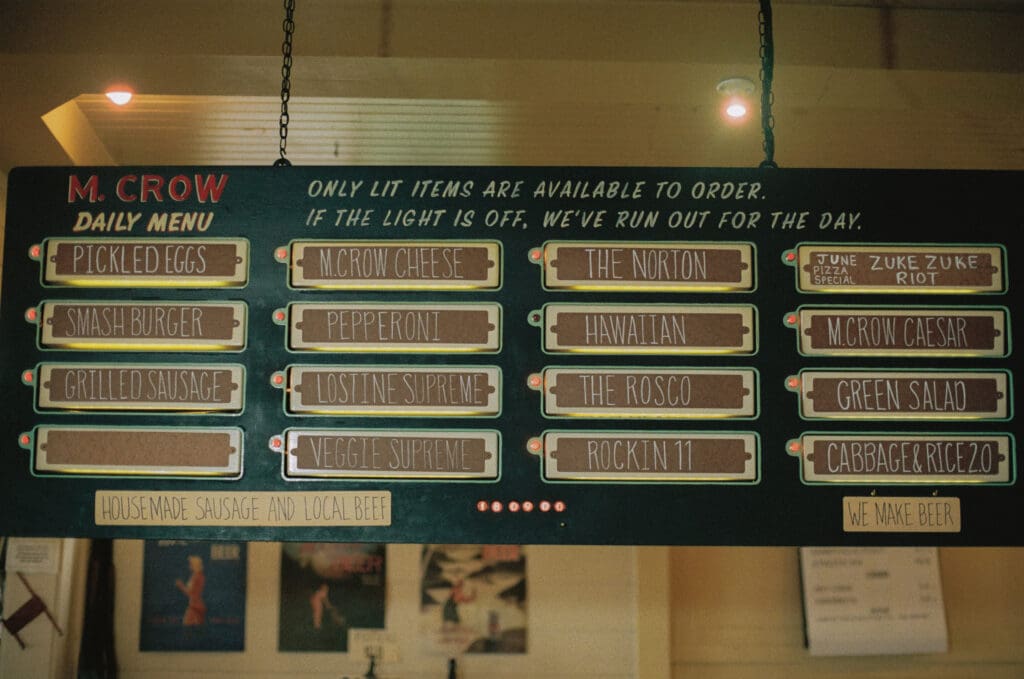 M. CROW
DAILY MENU
ONLY LIT ITEMS ARE AVAILABLE TO ORDER.
IF THE LIGHT IS OFF, WE'VE RUN OUT FOR THE DAY.
PICKLED EGGS
SMASH BURGER
GRILLED SAUSAGE
M.CROW CHEESE
PEPPERONI
LOSTINE SUPREME
VEGGIE SUPREME
THE NORTON
HAWAIIAN
THE ROSCO
ROCKIN 11
JUNE
PIZZA
SPECIAL
ZUKE ZUKE
RIOT
M.CROW CAESAR
GREEN SALAD
CABBAGE & RICE 2.0
HOUSEMADE SAUSAGE AND LOCAL BEEF
18 09 00
WE MAKE BEER
BEER